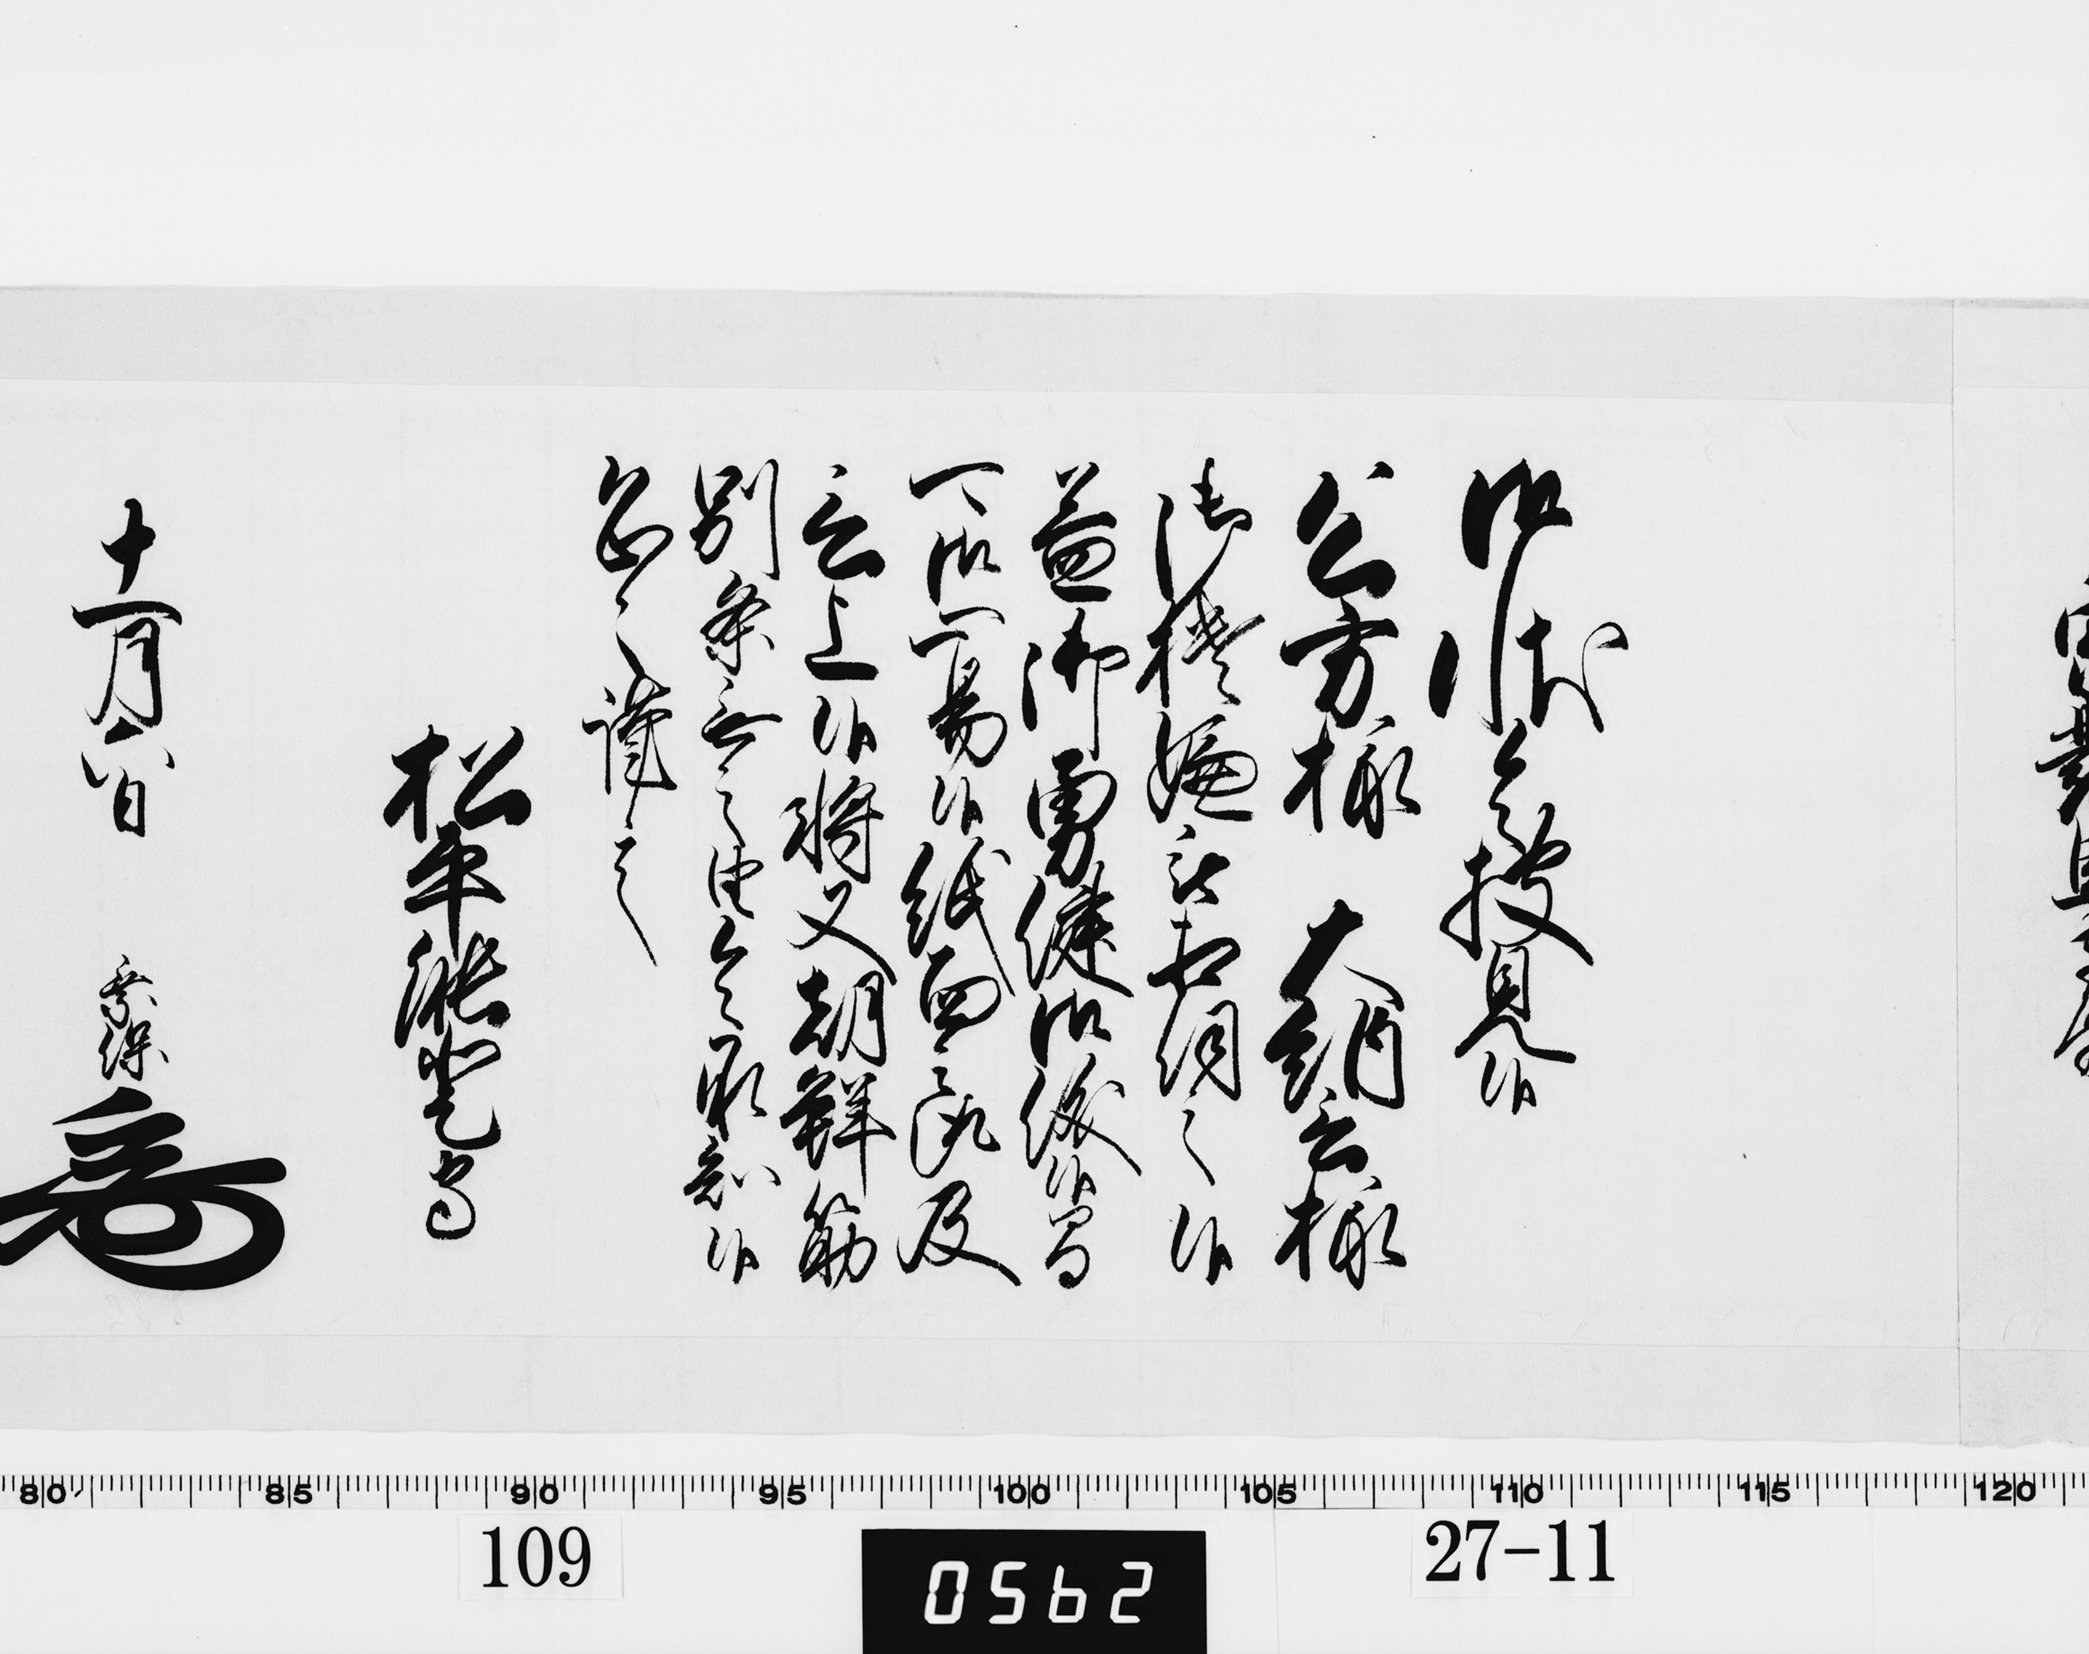 御状令披見候
公方様　大納言様
御機嫌被相伺之候
益御勇健御儀候間
可御心易候紙面之趣及
言上候将又朝鮮筋
別条無之由令承知候
恐々謹言
松平能登守
十一月六日　乗保
80 85 90 95 100 105 110 115 120
109 0562 27-11